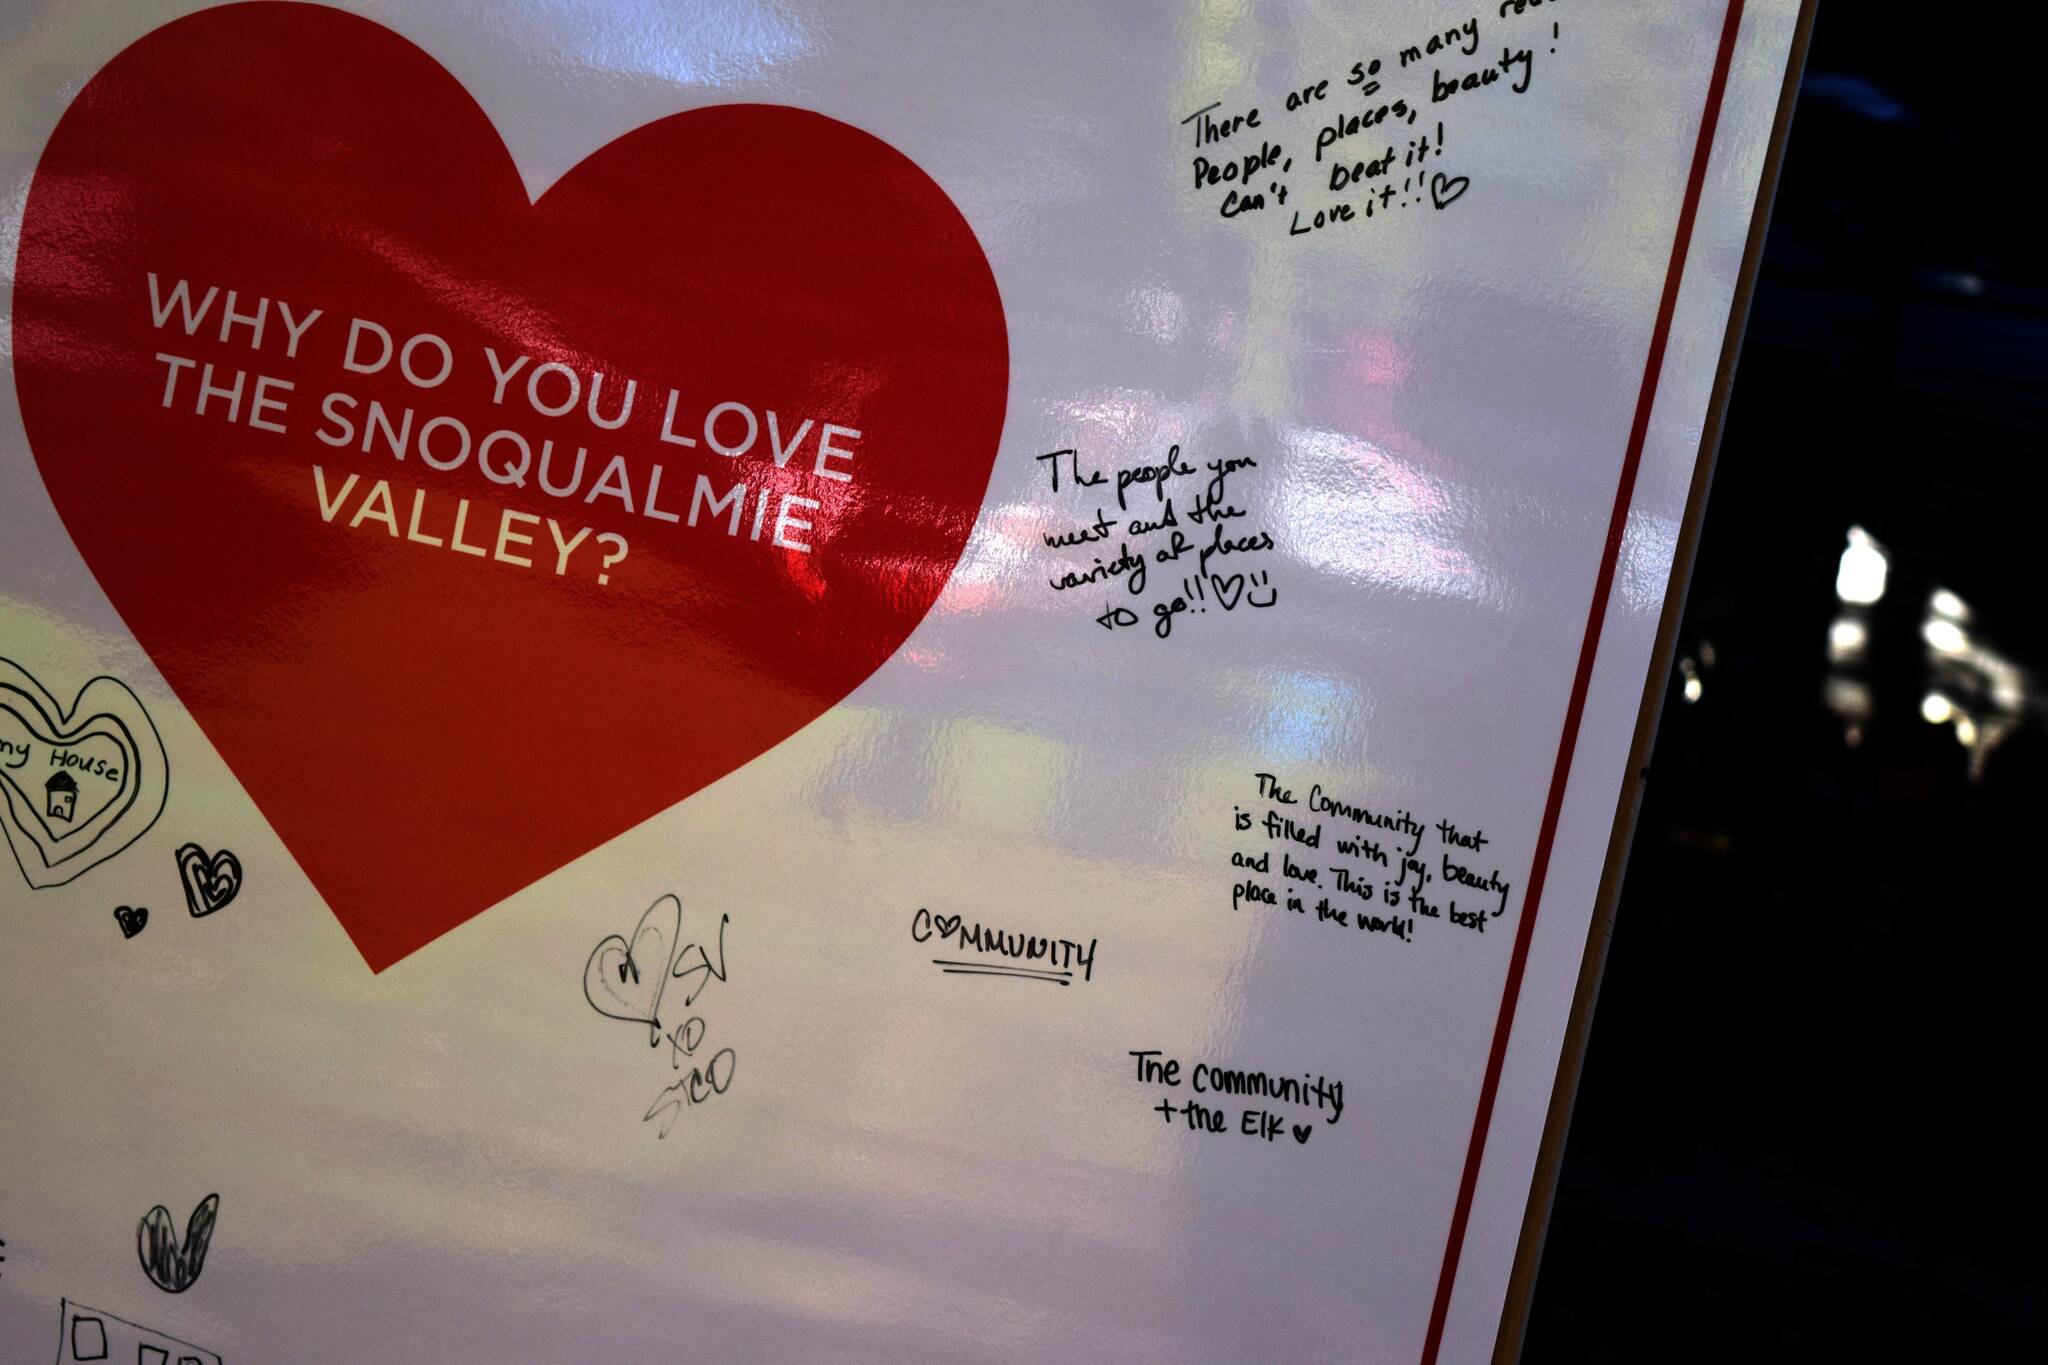 WHY DO YOU LOVE
THE SNOQUALMIE
VALLEY?
There are so many
People, places, beauty!
Can't beat it!
Love it!!
The people you
meet and the
variety of places
to go!!
my House
The Community that
is filled with joy, beauty
and love. This is the best
place in the world!
COMMUNITY
SV
XO
STCO
The community
+ the Elk